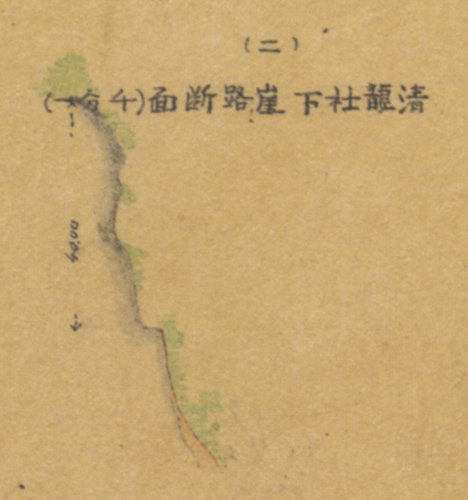 (二)
清龍社下崖路断面(千分一)
40.00